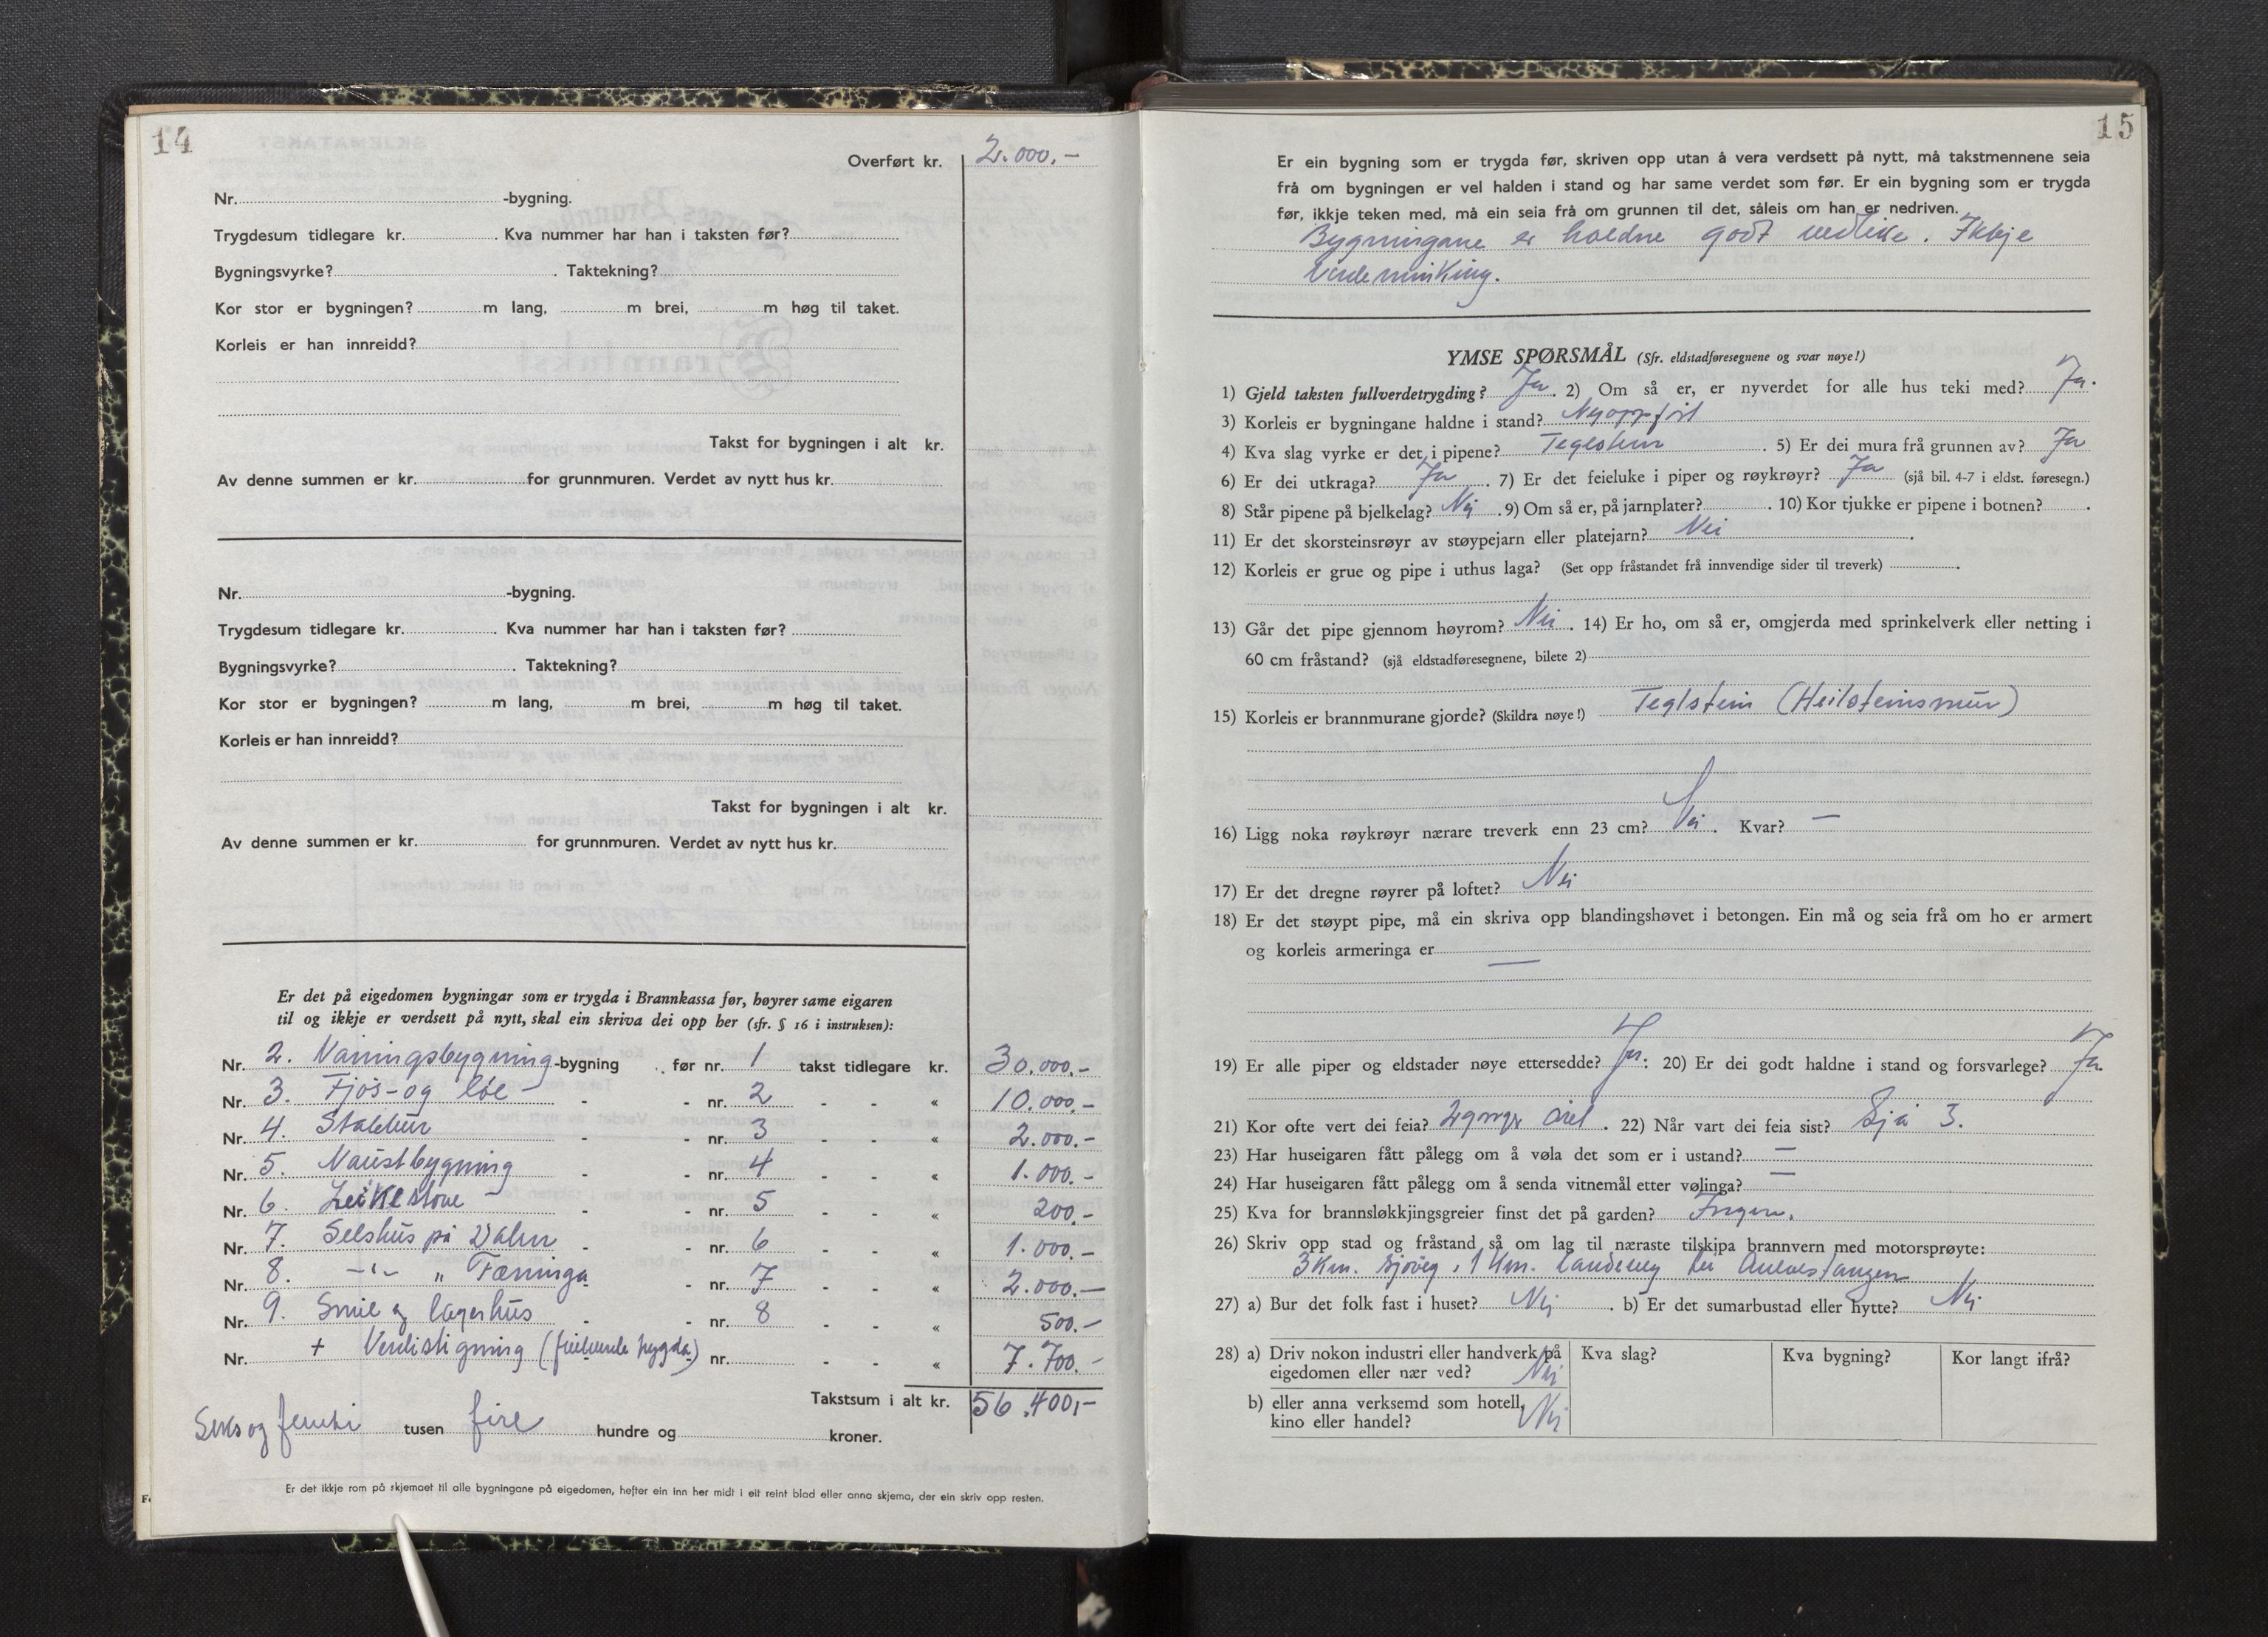 14
Overført kr. 2.000.-
Nr. -bygning.
Trygdesum tidlegare kr. . Kva nummer har han i taksten før?
Bygningsvyrke? . Taktekning?
Kor stor er bygningen? m lang, m brei, m høg til taket.
Korleis er han innreidd?
Takst for bygningen i alt kr.
Av denne summen er kr. for grunnmuren. Verdet av nytt hus kr.
Nr. -bygning.
Trygdesum tidlegare kr. . Kva nummer har han i taksten før?
Bygningsvyrke? . Taktekning?
Kor stor er bygningen? m lang, m brei, m høg til taket.
Korleis er han innreidd?
Takst for bygningen i alt kr.
Av denne summen er kr. for grunnmuren. Verdet av nytt hus kr.
Er det på eigedomen bygningar som er trygda i Brannkassa før, høyrer same eigaren
til og ikkje er verdsett på nytt, skal ein skriva dei opp her (sfr. § 16 i instruksen):
Nr. 2. Vaningsbygning -bygning før nr. 1 takst tidlegare kr. 30.000.-
Nr. 3. Fjøs- og løe - - nr. 2 - - « 10.000.-
Nr. 4. Stabbur - - nr. 3 - - « 2.000.-
Nr. 5. Naustbygning - - nr. 4 - - « 1.000.-
Nr. 6. Leikestove - - nr. 5 - - « 200.-
Nr. 7. Selshus på Dalen - - nr. 6 - - « 1.000.-
Nr. 8. -"- " Fæninga - - nr. 7 - - « 2.000.-
Nr. 9. Smie og lagerhus - - nr. 8 - - « 500.-
Nr. + Verdistigning (fullverde trygda) nr. - - « 7.700.-
Takstsum i alt kr. 56.400,-
Seks og femti tusen fire hundre og kroner.
Er det ikkje rom på skjemaet til alle bygningane på eigedomen, hefter ein inn her midt i eit reint blad eller anna skjema, der ein skriv opp resten.
15
Er ein bygning som er trygda før, skriven opp utan å vera verdsett på nytt, må takstmennene seia
frå om bygningen er vel halden i stand og har same verdet som før. Er ein bygning som er trygda
før, ikkje teken med, må ein seia frå om grunnen til det, såleis om han er nedriven.
Bygningane er haldne godt vedlike. Ikkje
verdeminking.
YMSE SPØRSMÅL (Sfr. eldstadføresegnene og svar nøye!)
1) Gjeld taksten fullverdetrygding? Ja . 2) Om så er, er nyverdet for alle hus teki med? Ja.
3) Korleis er bygningane haldne i stand? Nyoppført
4) Kva slag vyrke er det i pipene? Teglstein . 5) Er dei mura frå grunnen av? Ja
6) Er dei utkraga? Ja . 7) Er det feieluke i piper og røykrøyr? Ja (sjå bil. 4-7 i eldst. føresegn.)
8) Står pipene på bjelkelag? Nei . 9) Om så er, på jarnplater? . 10) Kor tjukke er pipene i botnen? .
11) Er det skorsteinsrøyr av støypejarn eller platejarn? Nei .
12) Korleis er grue og pipe i uthus laga? (Set opp fråstandet frå innvendige sider til treverk) .
13) Går det pipe gjennom høyrom? Nei . 14) Er ho, om så er, omgjerda med sprinkelverk eller netting i
60 cm fråstand? (sjå eldstadføresegnene, bilete 2)
15) Korleis er brannmurane gjorde? (Skildra nøye!) Teglstein (Heilsteinsmur)
16) Ligg noka røykrøyr nærare treverk enn 23 cm? Nei . Kvar? —
17) Er det dregne røyrer på loftet? Nei
18) Er det støypt pipe, må ein skriva opp blandingshøvet i betongen. Ein må og seia frå om ho er armert
og korleis armeringa er —
19) Er alle piper og eldstader nøye ettersedde? Ja . 20) Er dei godt haldne i stand og forsvarlege? Ja
21) Kor ofte vert dei feia? 2 gongr året . 22) Når vart dei feia sist? Sjå 3.
23) Har huseigaren fått pålegg om å vøla det som er i ustand? —
24) Har huseigaren fått pålegg om å senda vitnemål etter vølinga? —
25) Kva for brannsløkkjingsgreier finst det på garden? Ingen.
26) Skriv opp stad og fråstand så om lag til næraste tilskipa brannvern med motorsprøyte:
3 km. sjøveg, 1 km. landeveg
27) a) Bur det folk fast i huset? Nei . b) Er det sumarbustad eller hytte? Nei
28) a) Driv nokon industri eller handverk på
eigedomen eller nær ved? Nei
Kva slag? Kva bygning? Kor langt ifrå?
b) eller anna verksemd som hotell,
kino eller handel? Nei